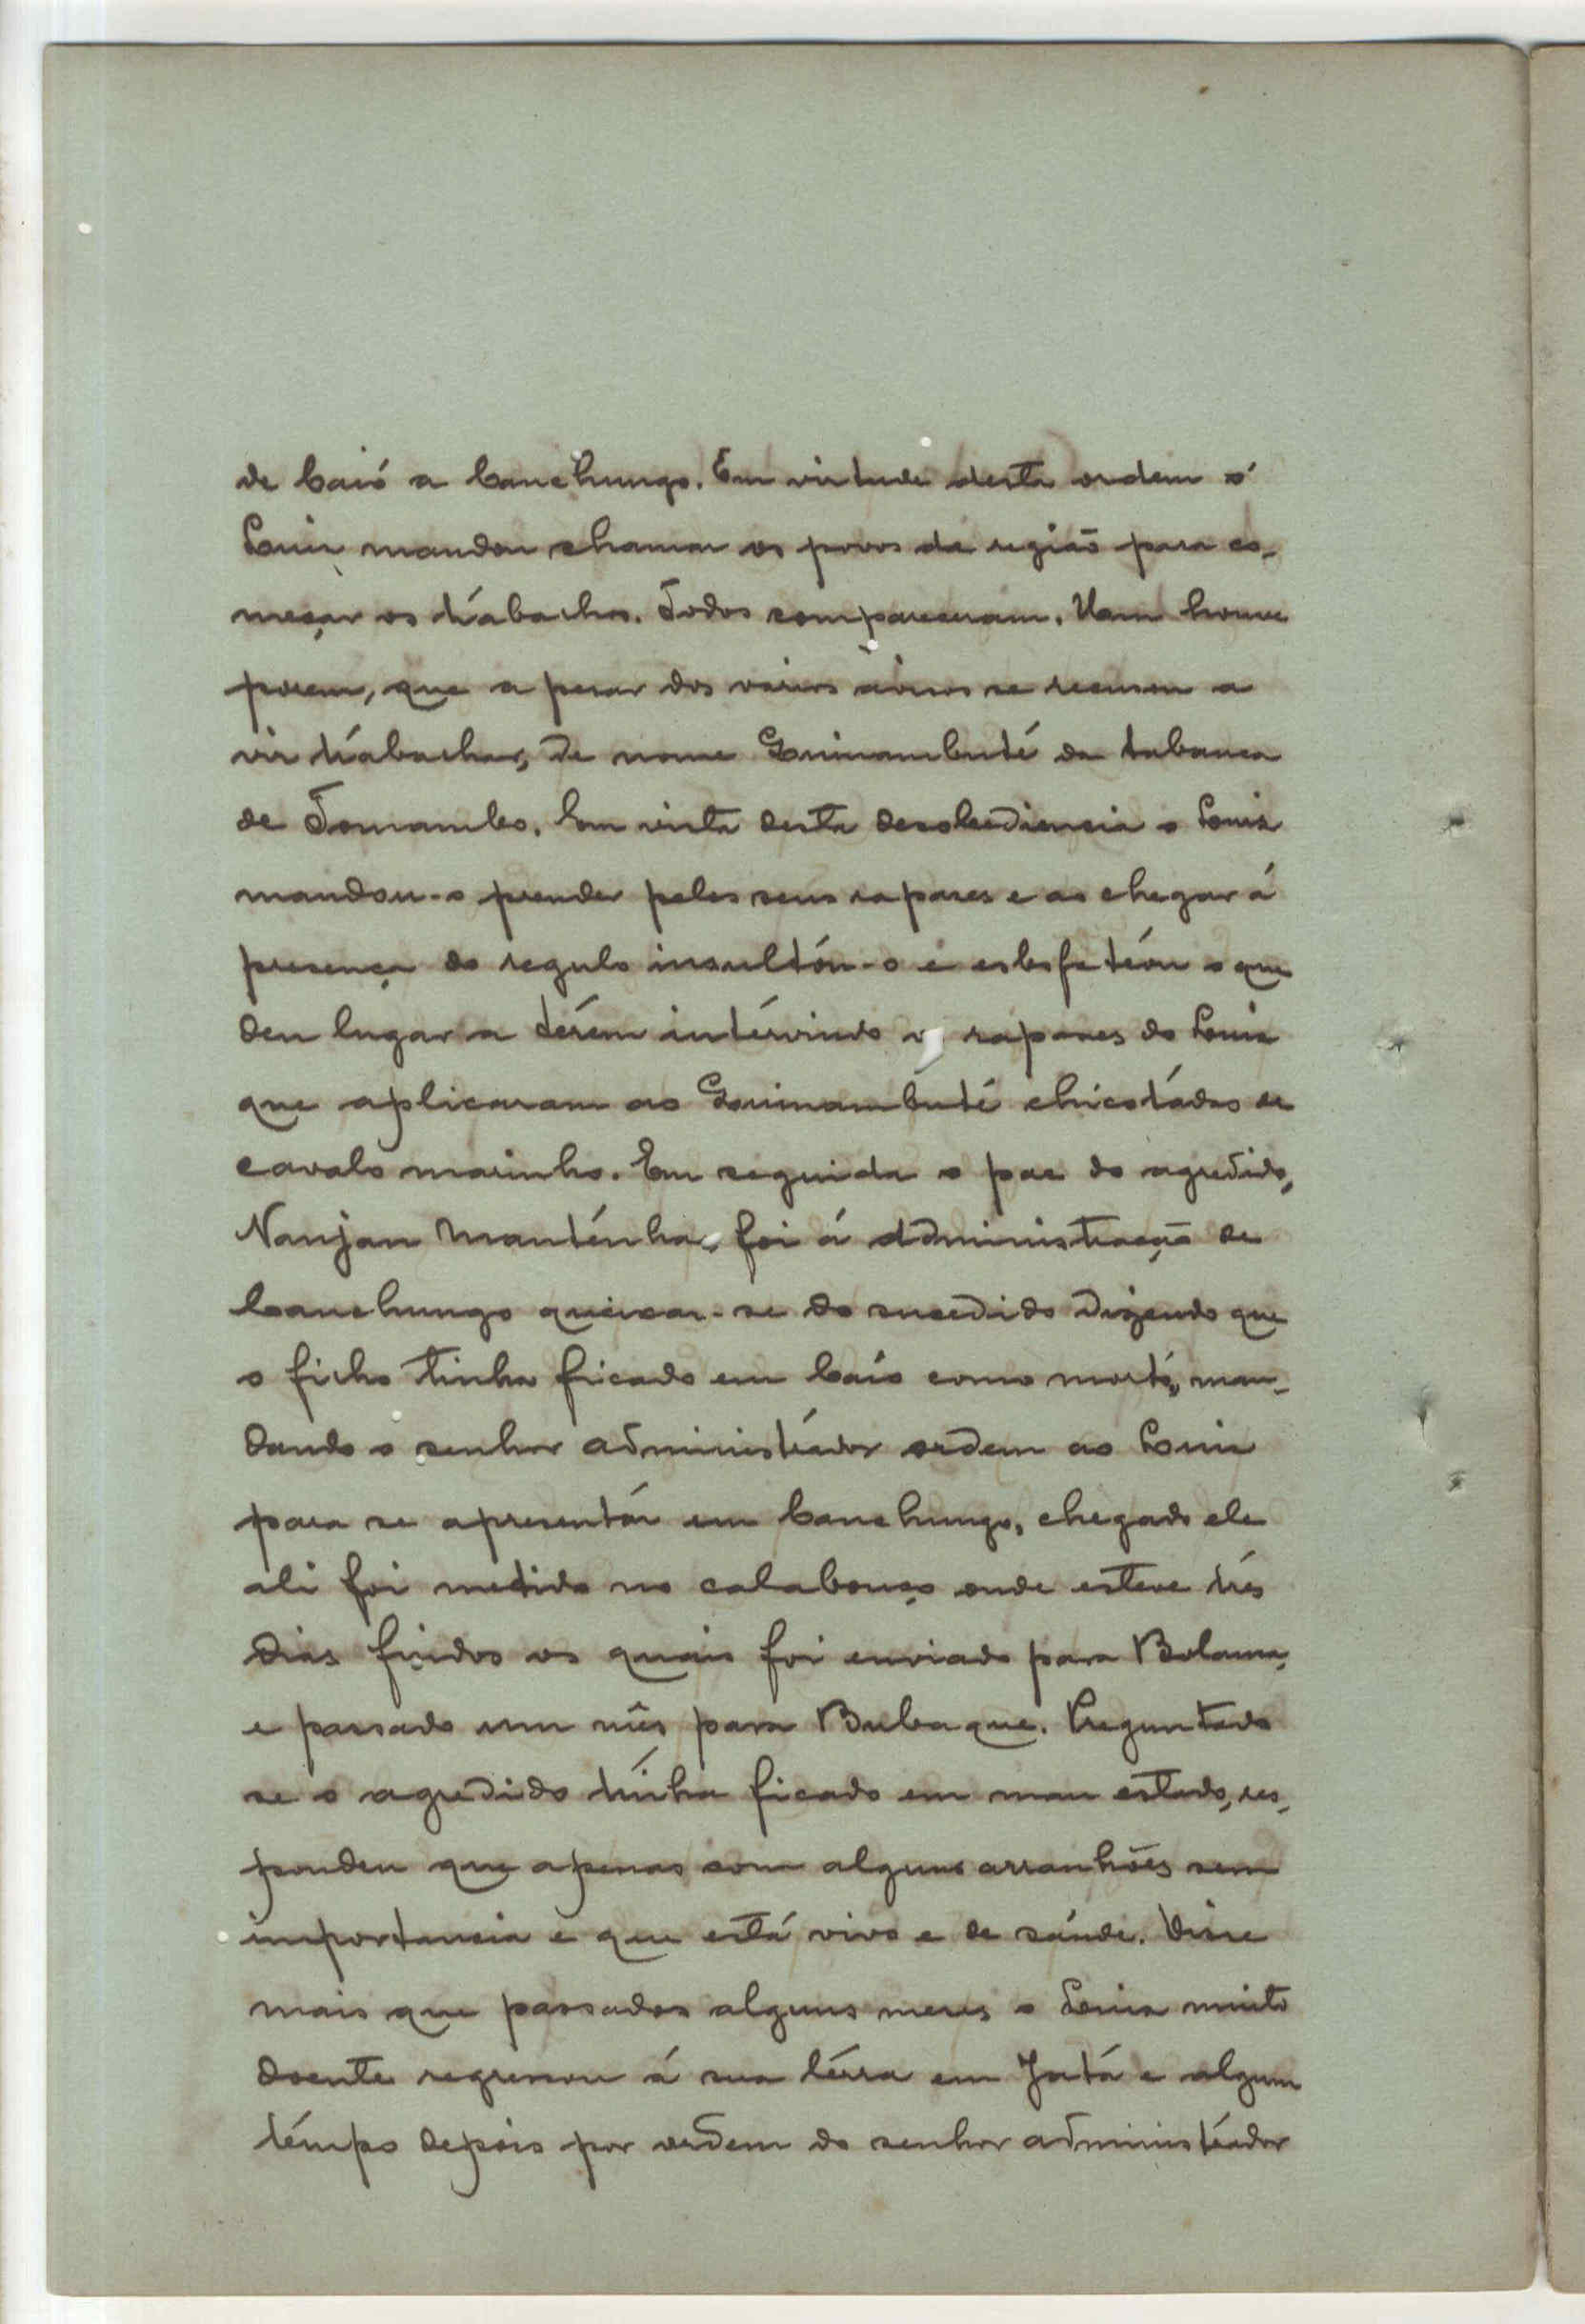 de Caió a Canchungo. Em virtude desta ordem o
Luiz mandou chamar os povos da região para co-
meçar os trabalhos. Todos compareceram. Um houve
porem, que a pesar dos varios avisos se recusou a
vir trabalhar, de nome Guinambuté da tabanca
de Tomambo. Em vista desta desobediencia o Luiz
mandou-o prender pelos seus rapazes e ao chegar á
presença do regulo insultou-o e esbofeteou o que
deu lugar a terem intervindo os rapazes do Luiz
que aplicaram ao Guinambuté chicotadas de
cavalo marinho. Em seguida o pae do agredido,
Nanjan Mantenha, foi á administração de
Canchungo queixar-se do sucedido dizendo que
o filho tinha ficado em Caió como morto, man-
dando o senhor administrador ordem ao Luiz
para se apresentar em Canchungo, chegado ele
ali foi metido no calabouço onde esteve três
dias findos os quais foi enviado para Bolama,
e passado um mês para Bubaque. Preguntado
se o agredido tinha ficado em mau estado, res-
pondeu que apenas com alguns arranhões sem
importancia e que está vivo e de saúde. Disse
mais que passados alguns meses o Luiz muito
doente regressou á sua terra em Jatá e algum
tempo depois por ordem do senhor administrador